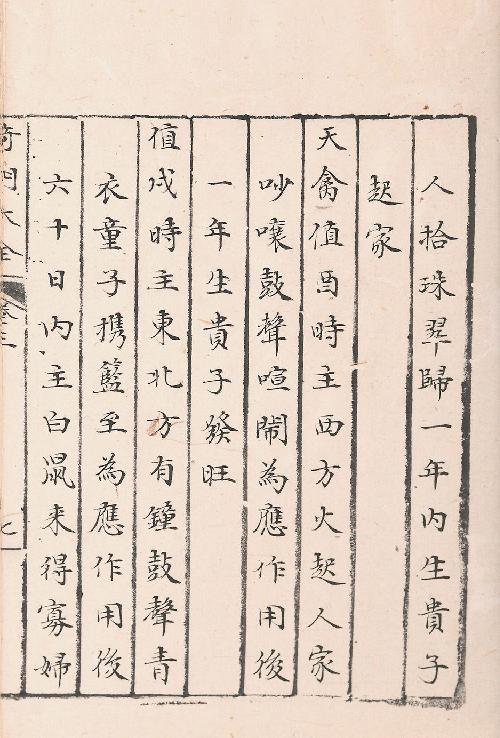 人拾珠翠歸一年内生貴子
起家
天禽值酉時主西方火起人家
吵嚷鼓聲喧鬧為應作用後
一年生貴子發旺
值戌時主東北方有鐘鼓聲青
衣童子携籃至為應作用後
六十日内主白鼠来得寡婦
奇門大全 卷三